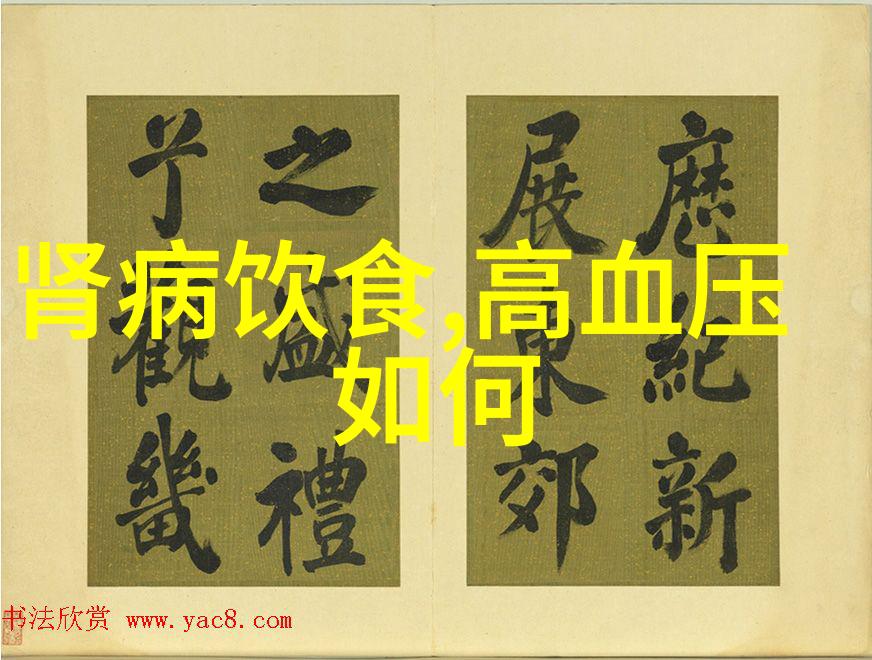 肾病饮食,高血压
如何
紀新
展東郊
之盛禮
觀畿
书法欣赏 www.yac8.com